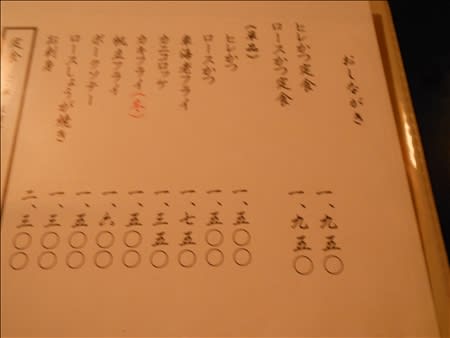 おしながき
ヒレかつ定食 一、九五〇
ロースかつ定食 一、九五〇
(単品)
ヒレかつ 一、五〇〇
ロースかつ 一、五〇〇
車海老フライ 一、七五〇
カニコロッケ 一、三五〇
カキフライ(冬) 一、五〇〇
帆立フライ 一、六〇〇
ポークソテー 一、五〇〇
ロースしょうが焼き 一、三〇〇
お刺身 二、三〇〇
定食